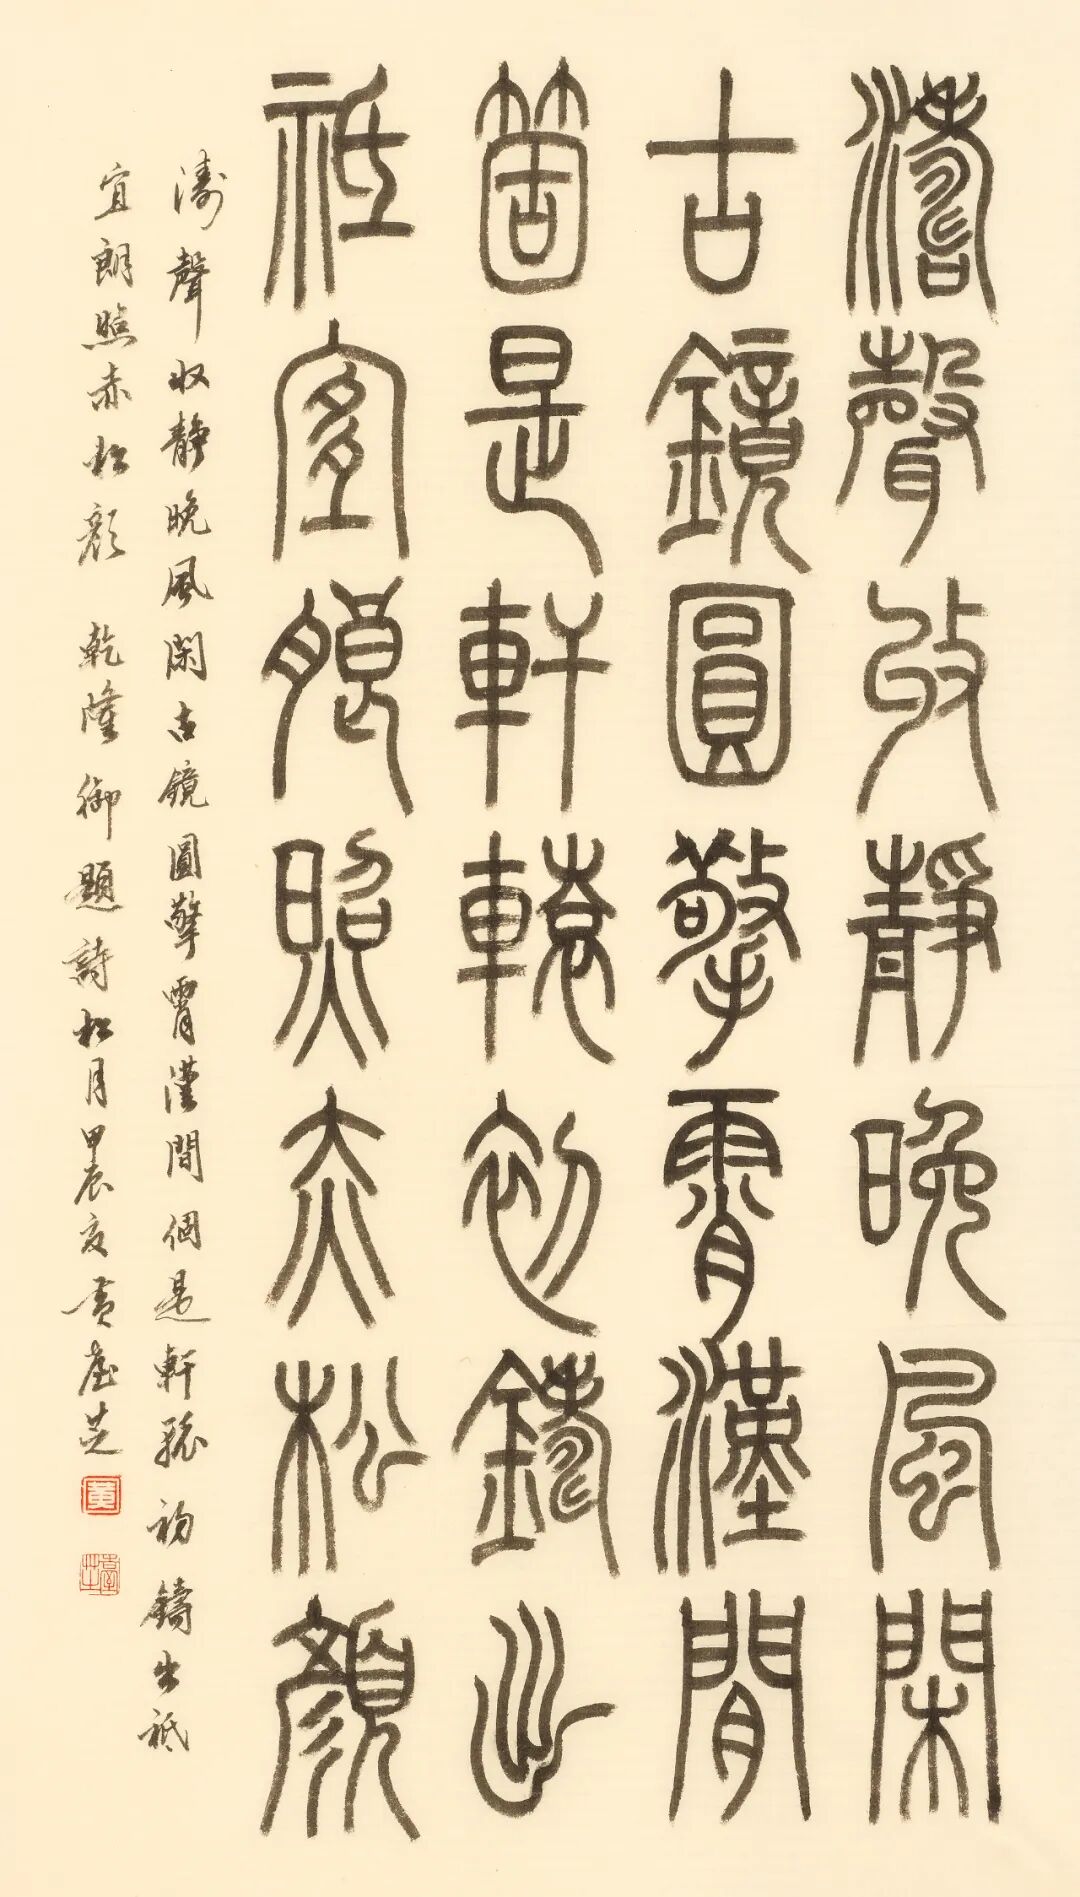 濤聲收靜晚風閑
古鏡圓擎霄漢間
箇是軒轅初鑄出
祗宜朖照赤松顏
濤聲收靜晚風閑古鏡圓擎霄漢間個是軒轅初鑄出祗
宜朗照赤松顏 乾隆御題詩松月甲辰夏黃臺芝
黃
臺芝